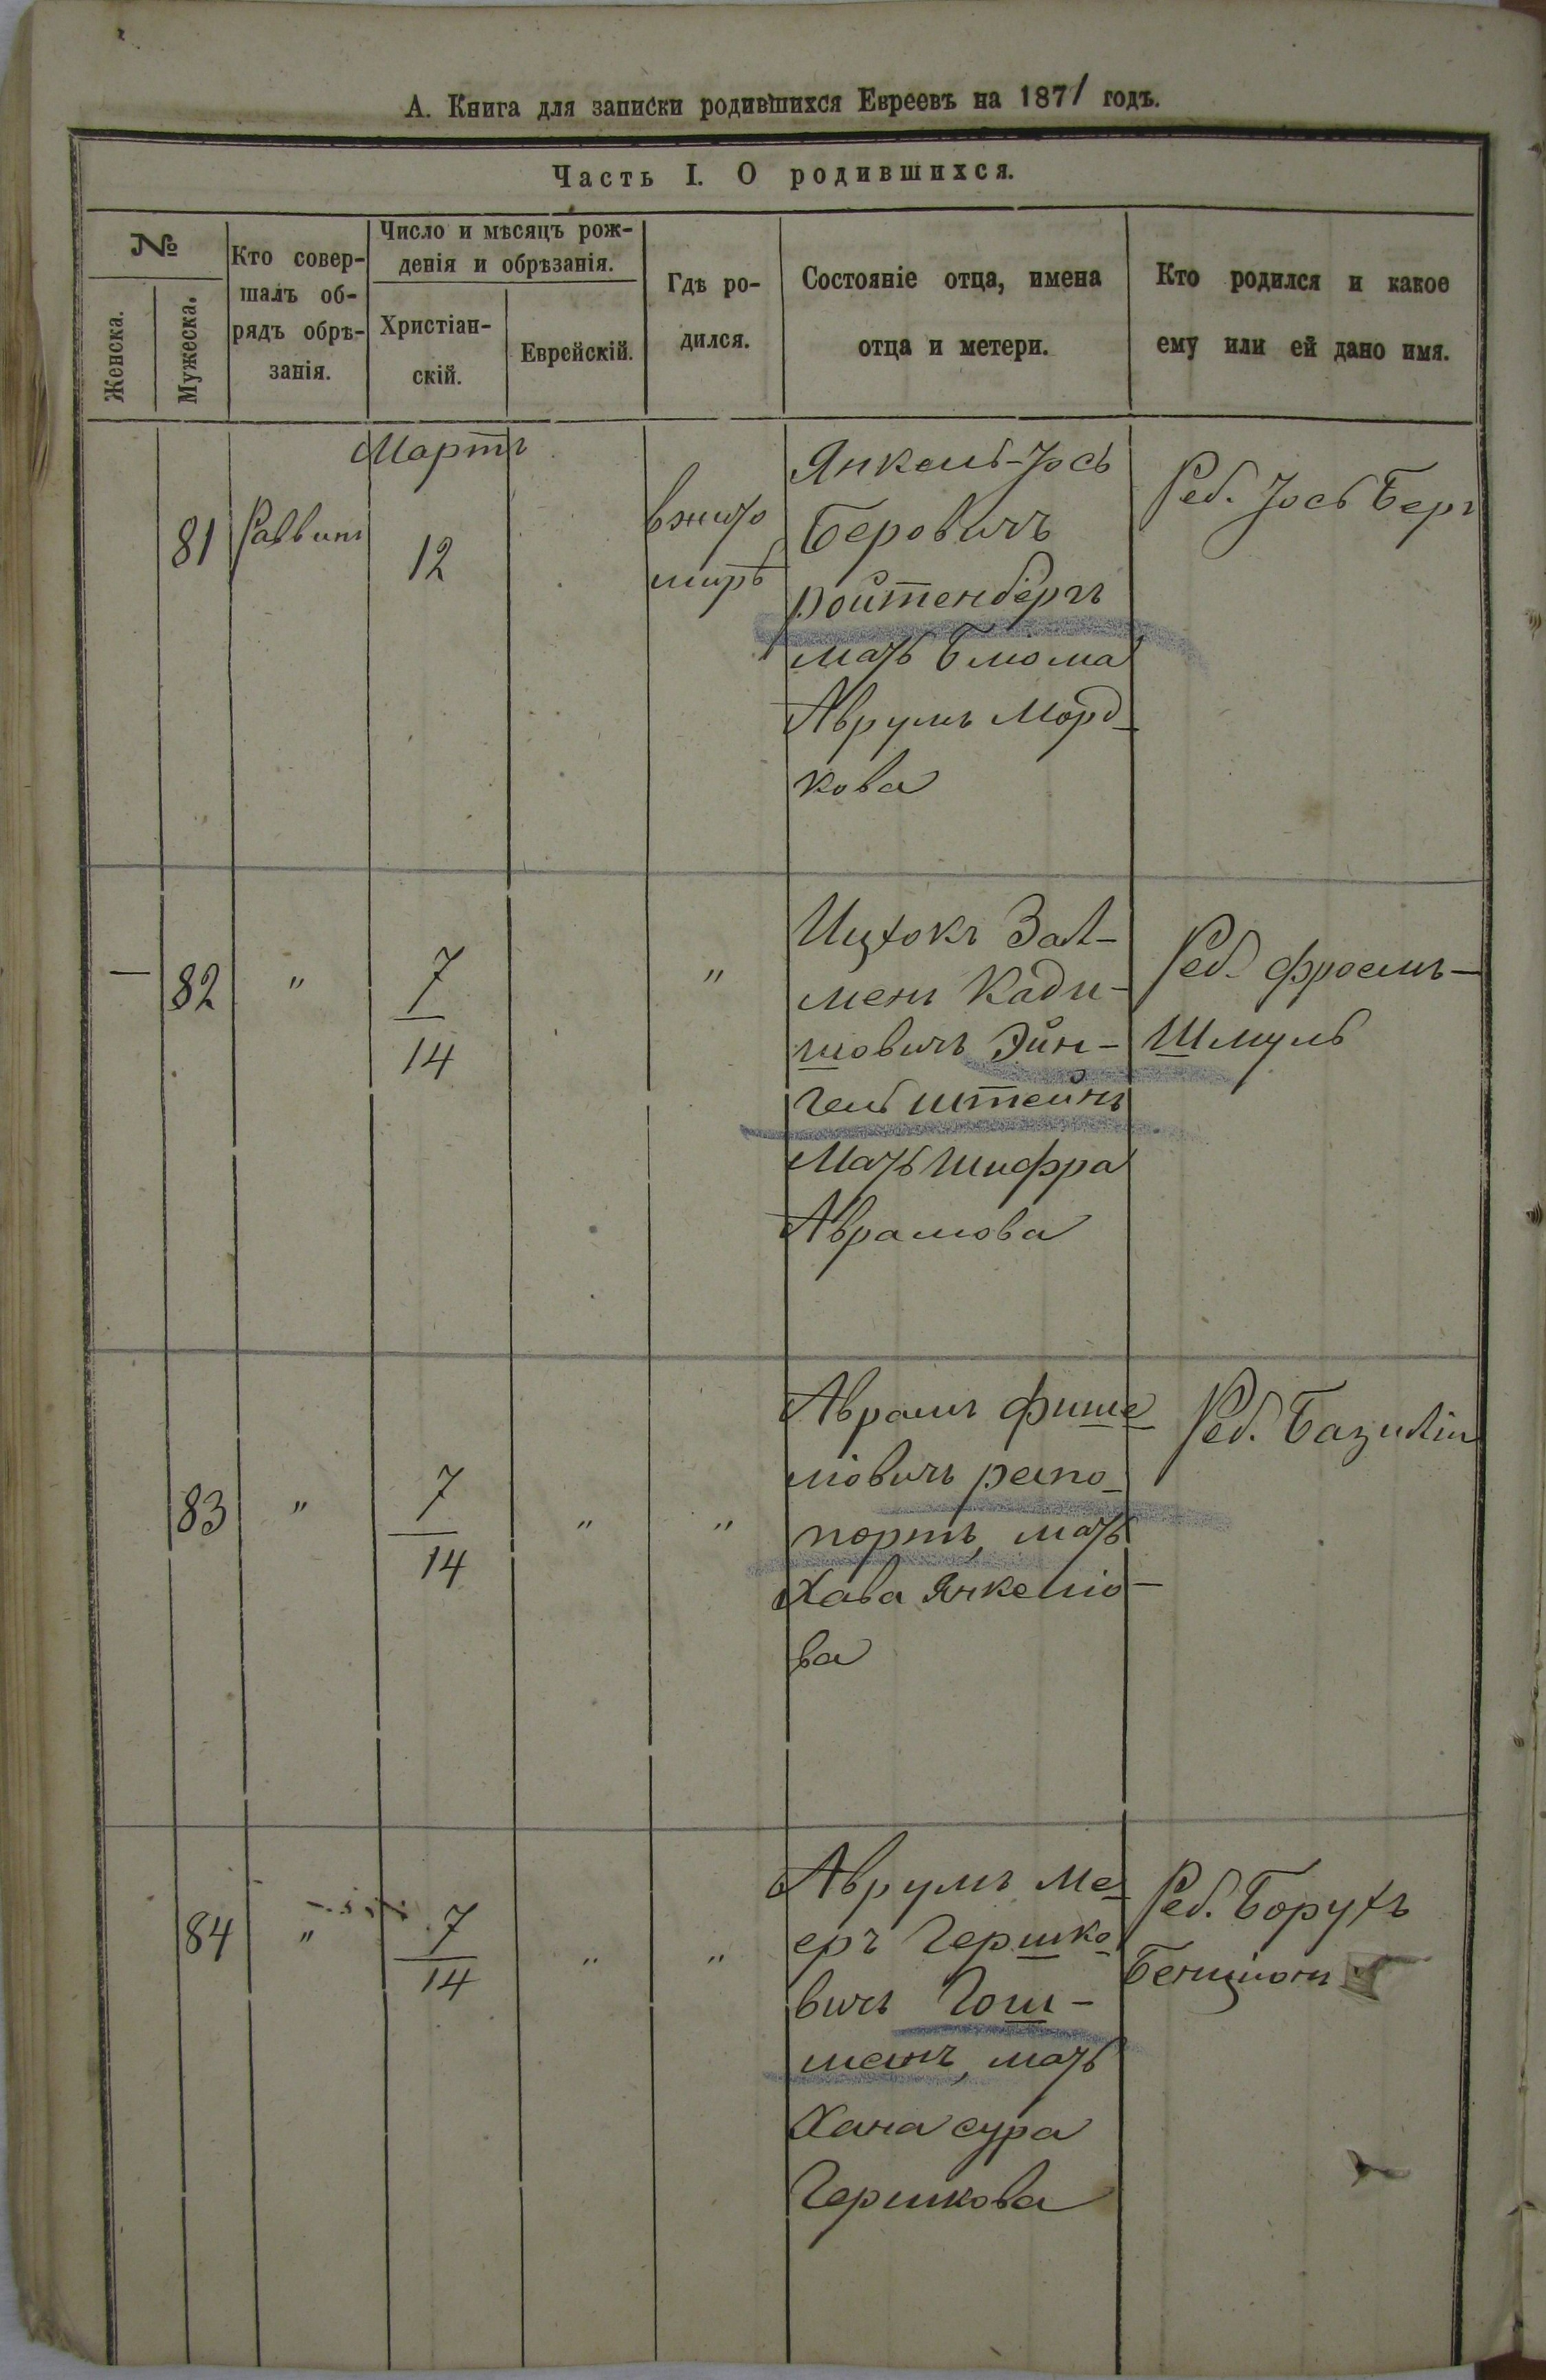 А. Книга для записки родившихся Евреевъ на 1871 годъ.
Часть I. О родившихся.
№
Женска.
Мужеска.
Кто совер-
шалъ об-
рядъ обрѣ-
занія.
Число и мѣсяцъ рож-
денія и обрѣзанія.
Христіан-
скій.
Еврейскій.
Гдѣ ро-
дился.
Состояніе отца, имена
отца и метери.
Кто родился и какое
ему или ей дано имя.
Мартъ
81
Раввинъ
12
вжито
мирѣ
Янкель-Јось
Беровичъ
ройтенбергъ
мать Блюма
Аврумъ Морд-
кова
Реб. Јось Беръ
—
82
"
7
14
"
Ицхокъ Зал-
менъ Кади-
шовичъ Эйн-
гель штейнъ
Мать Шифра
Аврамова
Реб. Фроемъ-
Шмуль
83
"
7
14
"
"
Аврамъ Фише
ліовичъ рапо-
портъ, мать
Хава Янкеліо-
ва
Реб.
84
"
7
14
"
"
Аврумъ Ме-
еръ Гершко-
вичъ Гош-
манъ, мать
Хана сура
Гершкова
Реб. Борухъ
Бенціонъ